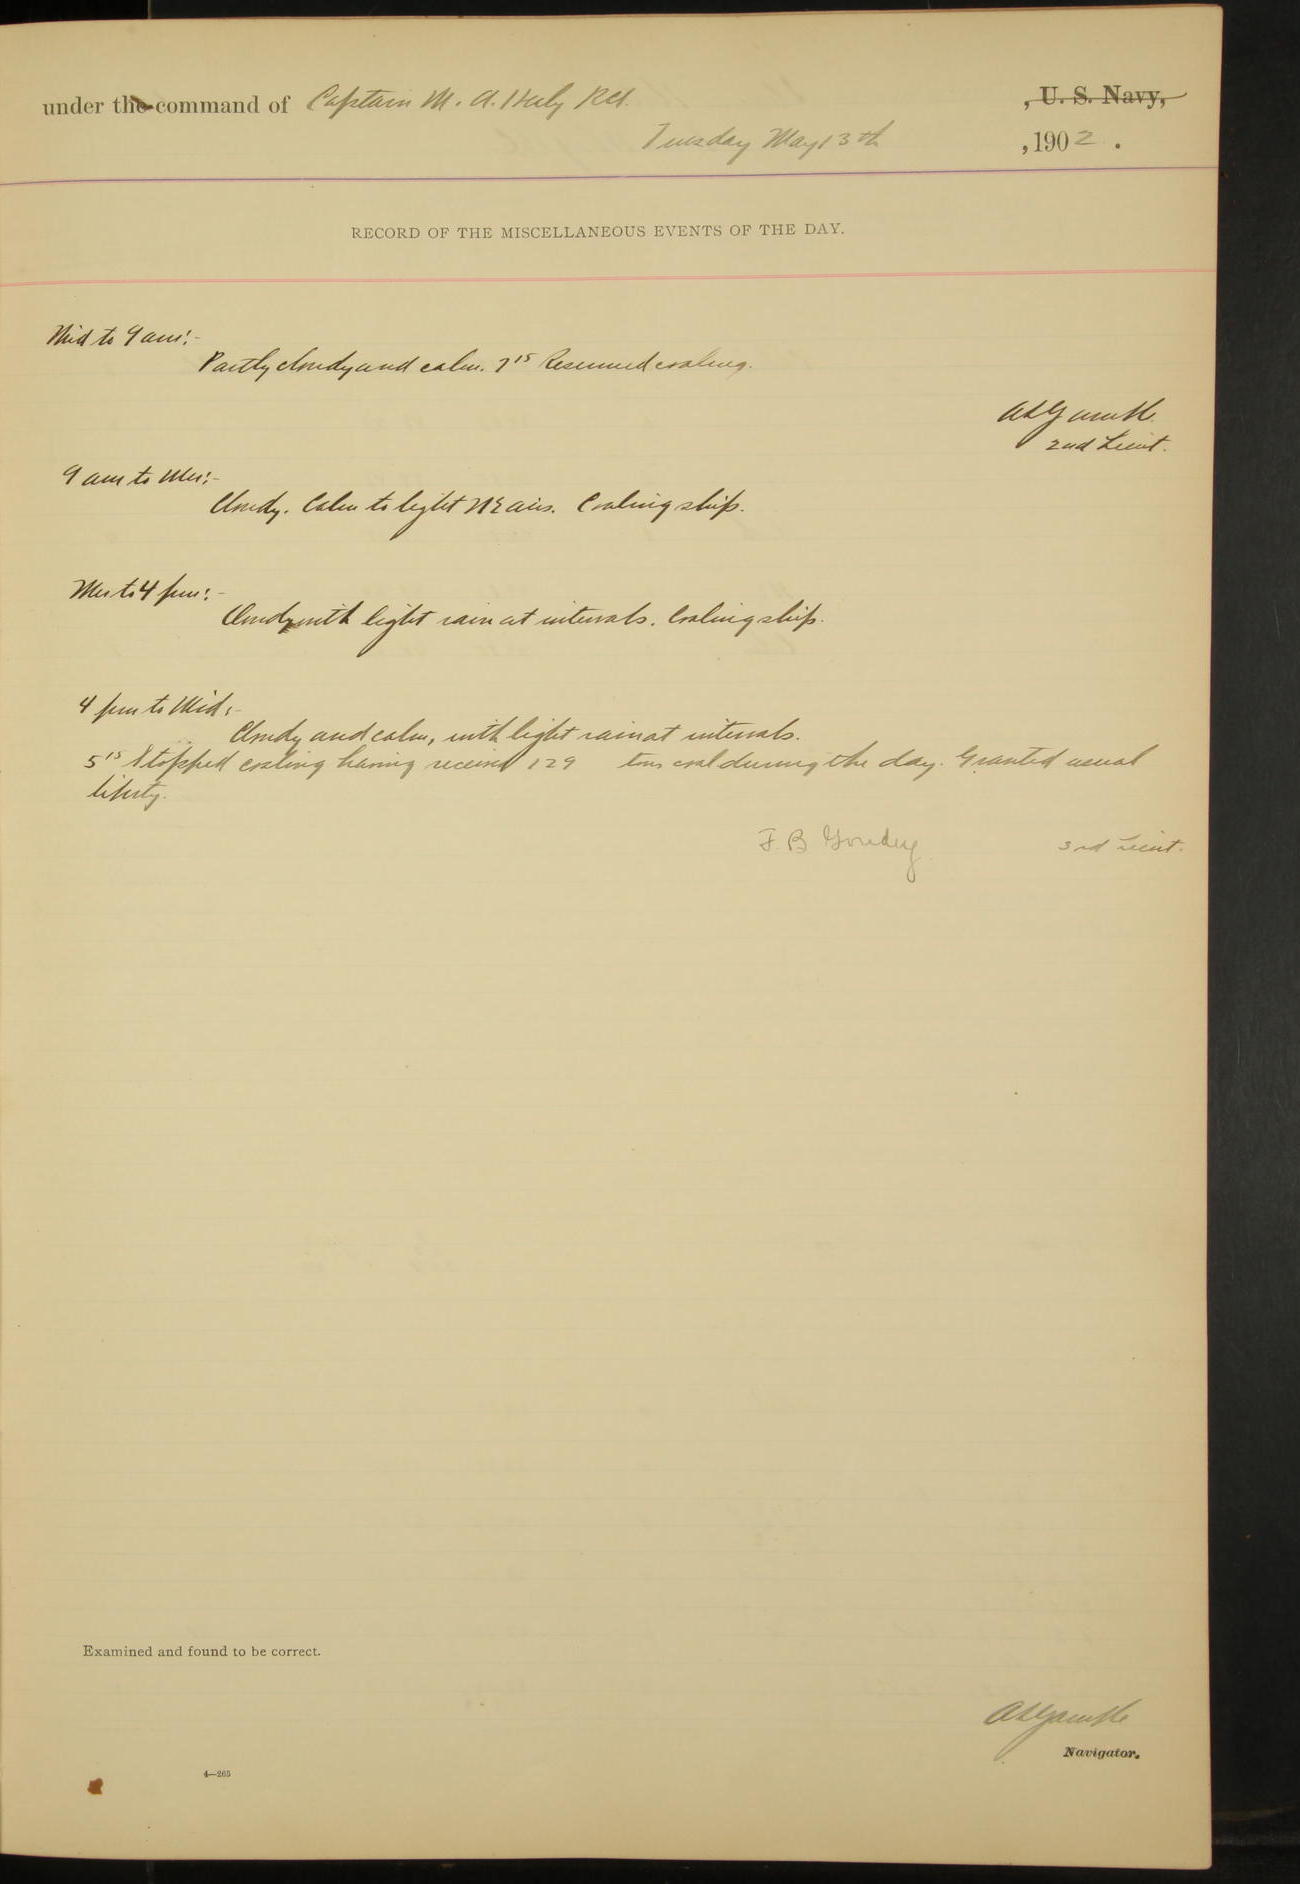 under the command of Captain M. A. Healy RCS. , U. S. Navy,
Tuesday May 13th , 1902 .
RECORD OF THE MISCELLANEOUS EVENTS OF THE DAY.
Mid to 9 am:-
Partly cloudy and calm. 7 15 Resumed coaling.
A L Gamble
2nd Lieut.
9 am to Mer:-
Cloudy. Calm to light NE airs. Coaling ship.
Mer to 4 pm:-
Cloudy with light rain at intervals. Coaling ship.
4 pm to Mid:-
Cloudy and calm, with light rain at intervals.
5 15 Stopped coaling having received 129 tons coal during the day. Granted usual
liberty.
F. B. 3rd Lieut.
Examined and found to be correct.
A L Gamble
Navigator.
4—265